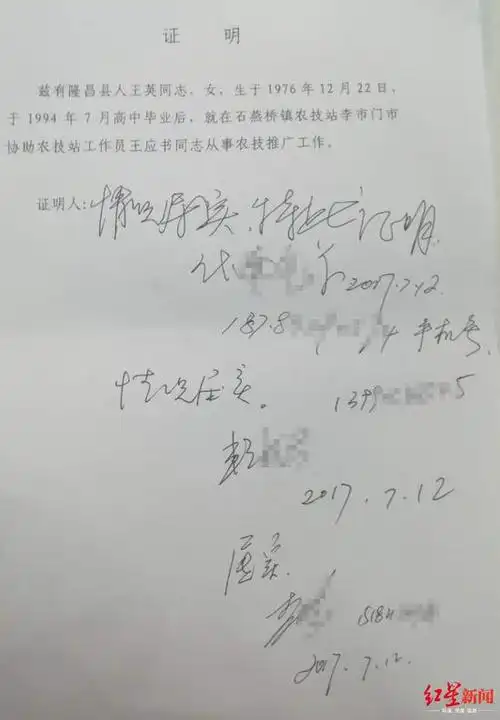 证 明
兹有隆昌县人王英同志，女，生于 1976 年 12 月 22 日，
于 1994 年 7 月高中毕业后，就在石燕桥镇农技站李市门市
协助农技站工作员王应书同志从事农技推广工作。
证明人：情况属实，特此证明
代 2017.7.12
187.8 4 手机号
情况属实。 139 5
2017.7.12
属实
李 1518
2017.7.12.
红星新闻